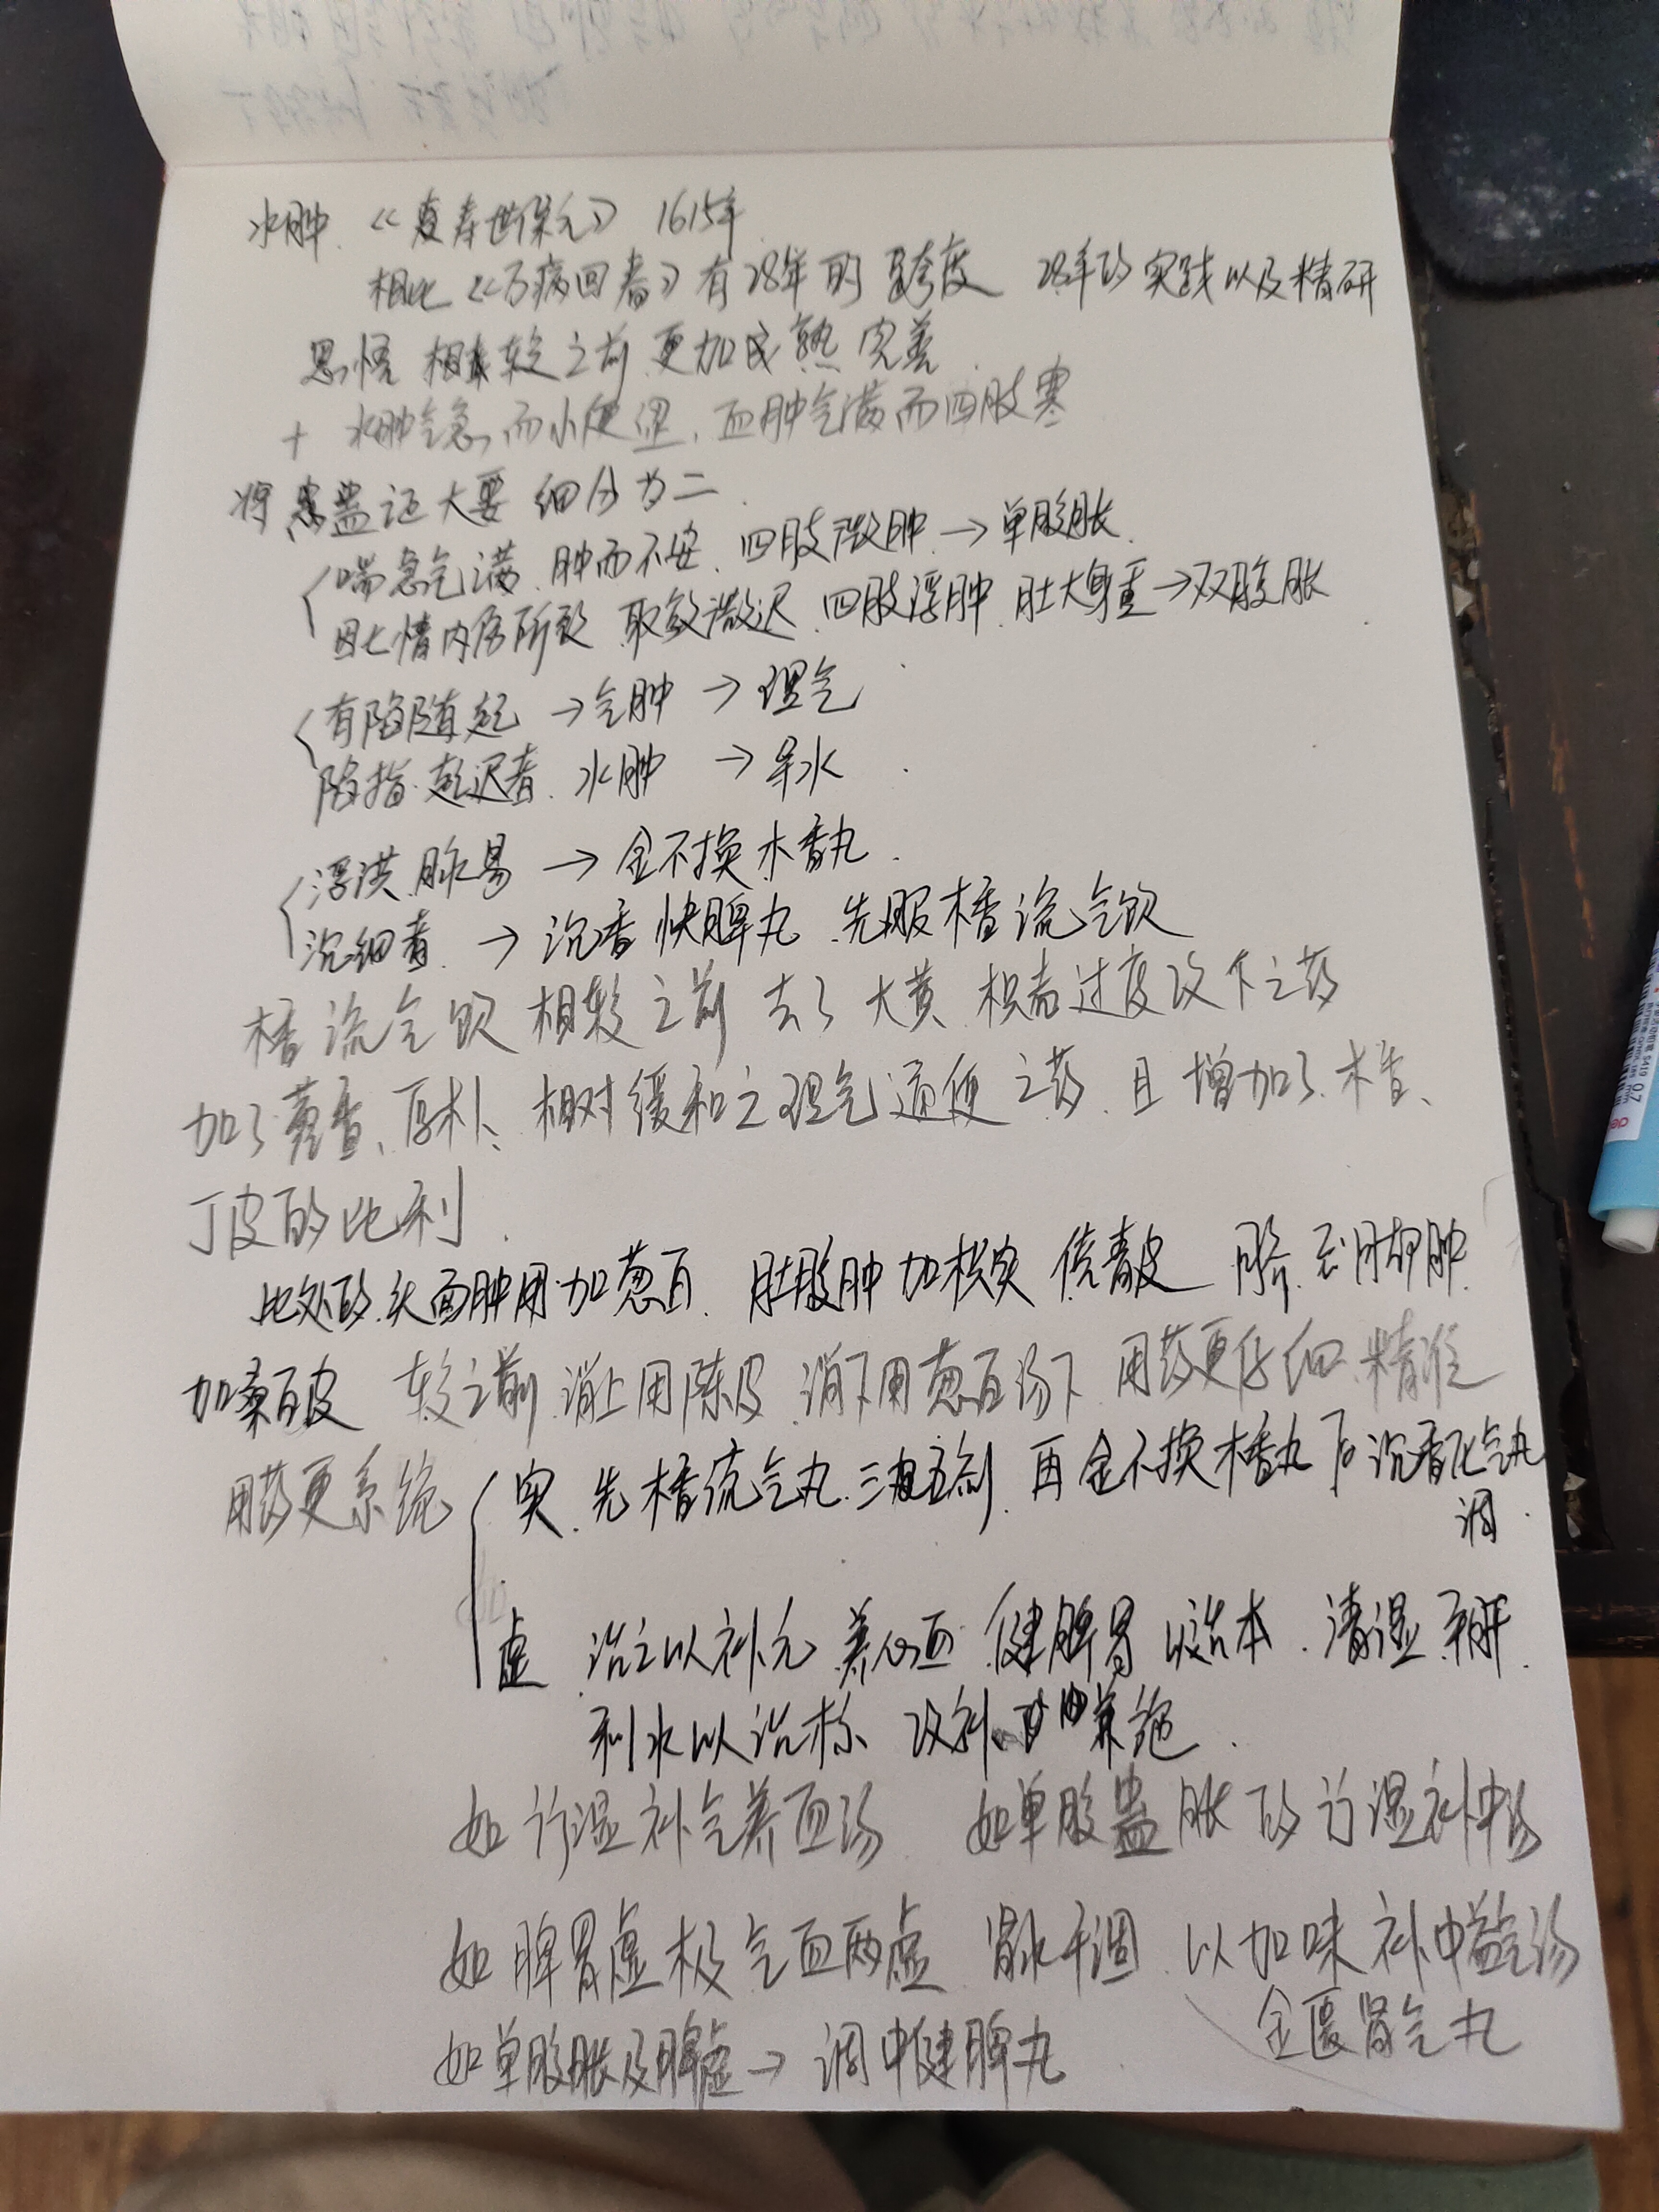 水肿 《寿世保元》 1615年
相比《万病回春》有28年的跨度 28年的实践以及精研
思悟 相较之前更加成熟完善
+ 水肿气急,而小便涩,血肿气满而四肢寒
将患蛊证大要细分为二
喘急气满 肿而不安 四肢微肿→单腹胀
因七情内伤所致 取效微迟 四肢浮肿 肚大身重→双腹胀
有陷随起→气肿→理气
陷指起迟者 水肿→导水
浮洪脉易→金不换木香丸
沉细者→沉香快脾丸 先服木香流气饮
木香流气饮相较之前去了大黄 枳壳过度攻下之药
加了藿香、厚朴、相对缓和之理气通便之药 且增加了木香、
丁皮的比利
此处的头面肿用加葱白 肚腹肿加枳实 倍青皮 脐至脚肿
加桑白皮 较之前消上用陈皮 消下用葱白汤下 用药更仔细精准
用药更系统 实 先木香流气丸三五剂 再金不换木香丸 后沉香化气丸
调
虚 治之以补元 养心血 健脾胃以治本 清湿平肝
利水以治标 攻补兼施
如行湿补气养血汤 如单腹蛊胀的行湿补中汤
如脾胃虚极气血两虚 肾水不调 以加味补中益气汤
金匮肾气丸
如单腹胀及脾虚→调中健脾丸